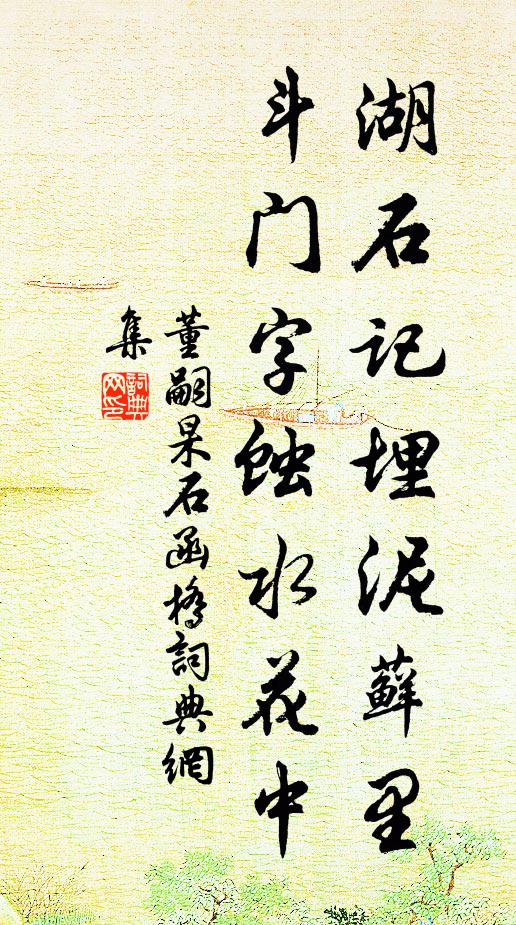 湖石记埋泥藓里
斗门字蚀水花中
董嗣杲石函桥詞典網
集
詞典
网印